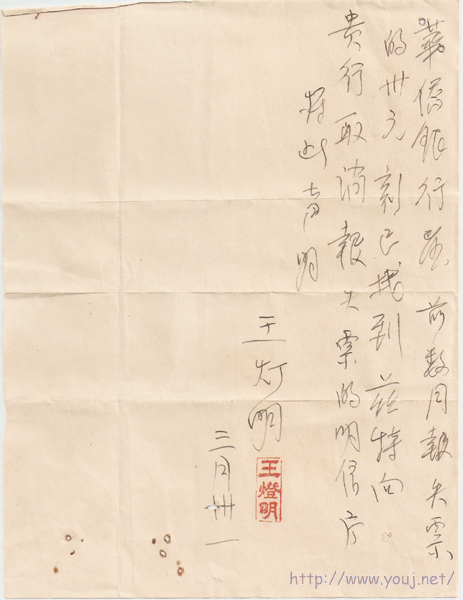 華侨银行鉴 前数月報失票
的卅元 刻已找到 茲特向
贵行取消報失票的明信片
特此声明
王灯明
王燈明
三月卅一
http://www.youj.net/